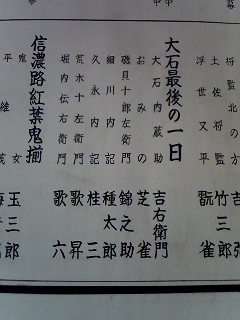 幕
将監北の方 吉弥
土佐将監 竹三郎
浮世又平 翫雀
大石最後の一日
大石内蔵助 吉右衛門
おみの 芝雀
磯貝十郎左衛門 錦之助
細川内記 種太郎
久永内記 桂三
荒木十左衛門 歌昇
堀内伝右衛門 歌六
信濃路紅葉鬼揃
鬼女 玉三郎
平維茂